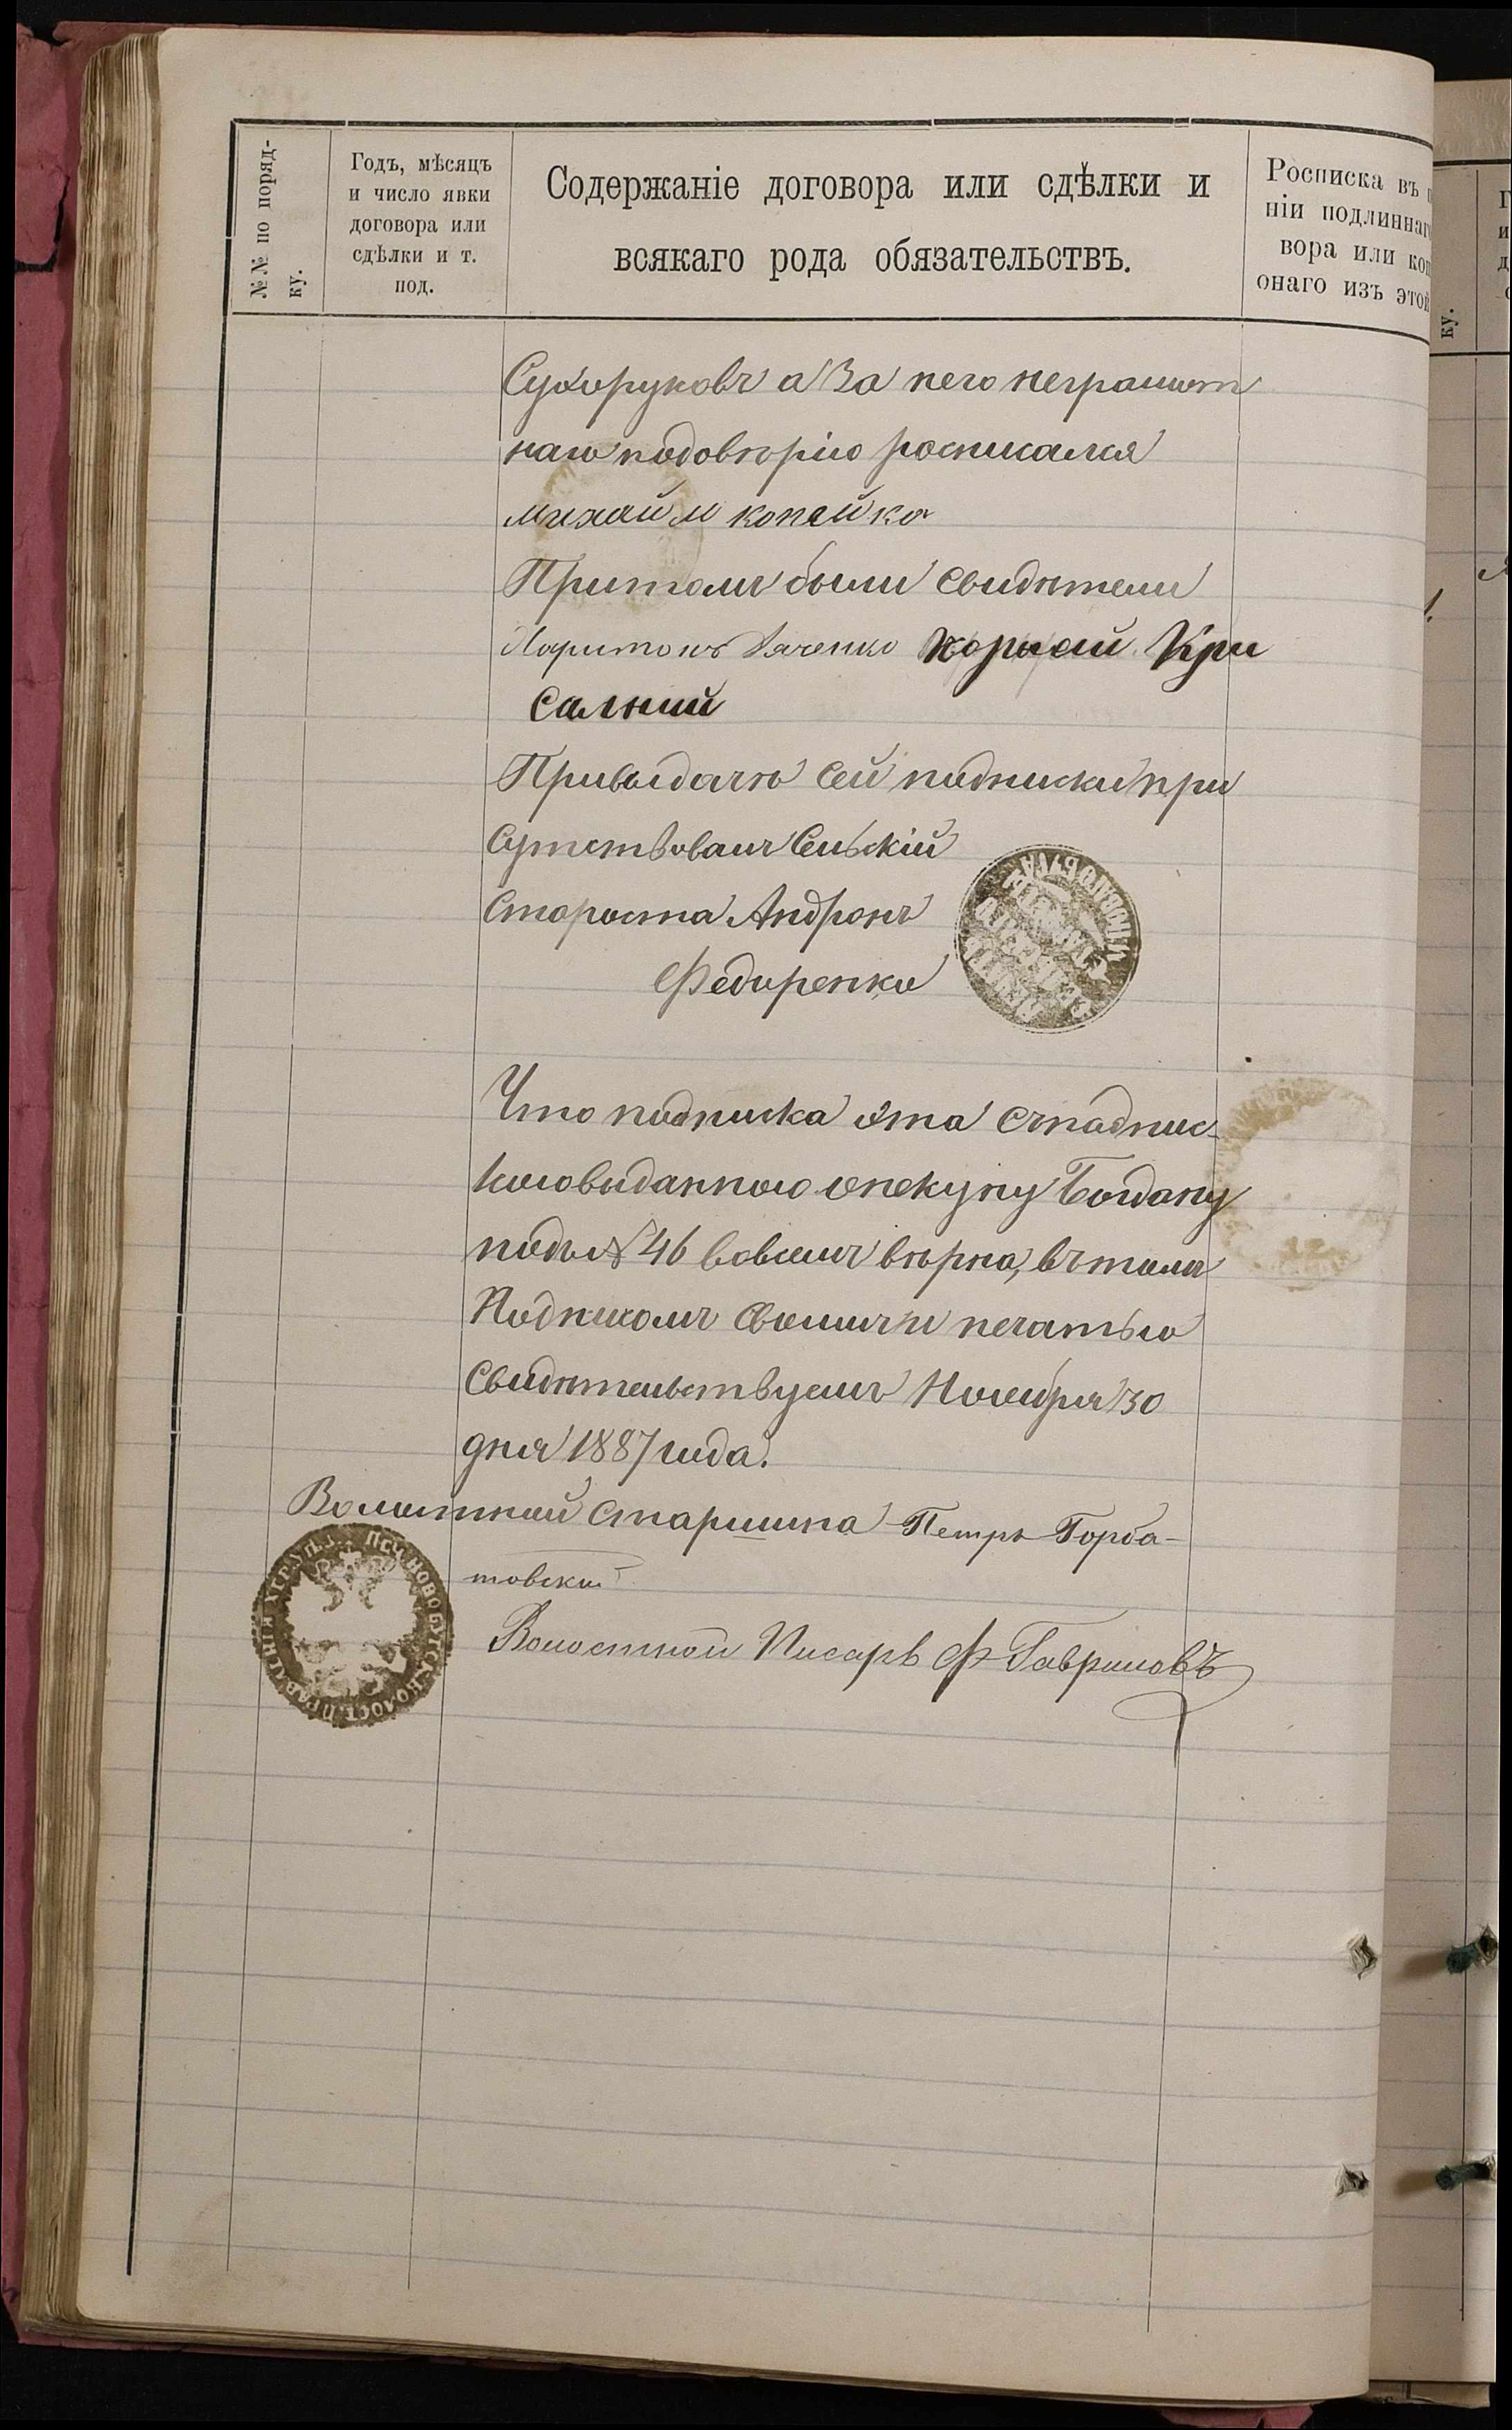 №№ по поряд-
ку.
Годъ, мѣсяцъ
и число явки
договора или
сдѣлки и т.
под.
Содержаніе договора или сдѣлки и
всякаго рода обязательствъ.
Росписка въ
ніи подлиннаг
вора или коп
онаго изъ этой
Сухоруковъ а за него неграмот
наго подовѣрію росписался
михайло копейка
Притомъ были свидѣтели
Харитонъ корней Кри
Привыдачѣ сей подписки при
сутствовалъ Сельскій
Староста Андронъ
Федоренко
Что подписка эта съ подпис-
кою выданною опекуну Богдану
подъ № 46 вовсемъ вѣрна, въ томъ
Подписомъ своимъ и печатью
свидѣтельствуемъ Ноября 30
дня 1887 года.
Волостной старшина Петръ Горба-
товскій
Волостной Писарь Ф Гавриловъ
ку.